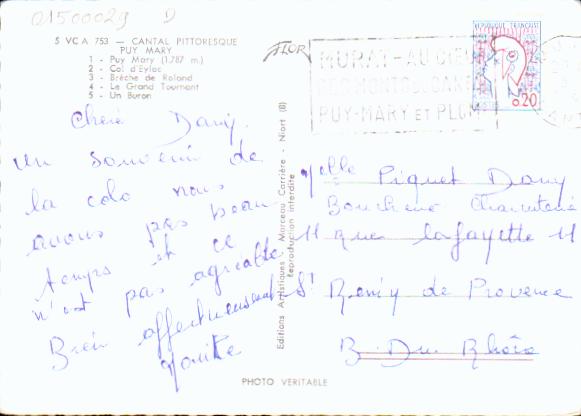 01500029 D
5 VC A 753 — CANTAL PITTORESQUE
PUY MARY
1 - Puy Mary (1.787 m.)
2 - Col d'Eylac
3 - Brèche de Roland
4 - Le Grand Tournant
5 - Un Buron
Chère Dany.
Un souvenir de
la colo nous
avons pas beau
temps et ce
n'est pas agréable
Bien affectueusement
FLOR
Editions Artistiques - Marceau Carrière - Niort (B)
Reproduction interdite
MURAT-AU CŒUR
DES MONTS DU CANTAL
PUY-MARY ET PLOMB
REPUBLIQUE FRANÇAISE
0,20
Melle Piquet Dany
Boucherie Charcuterie
11 Rue Lafayette 11
St Remy de Provence
B. Du Rhône
PHOTO VERITABLE